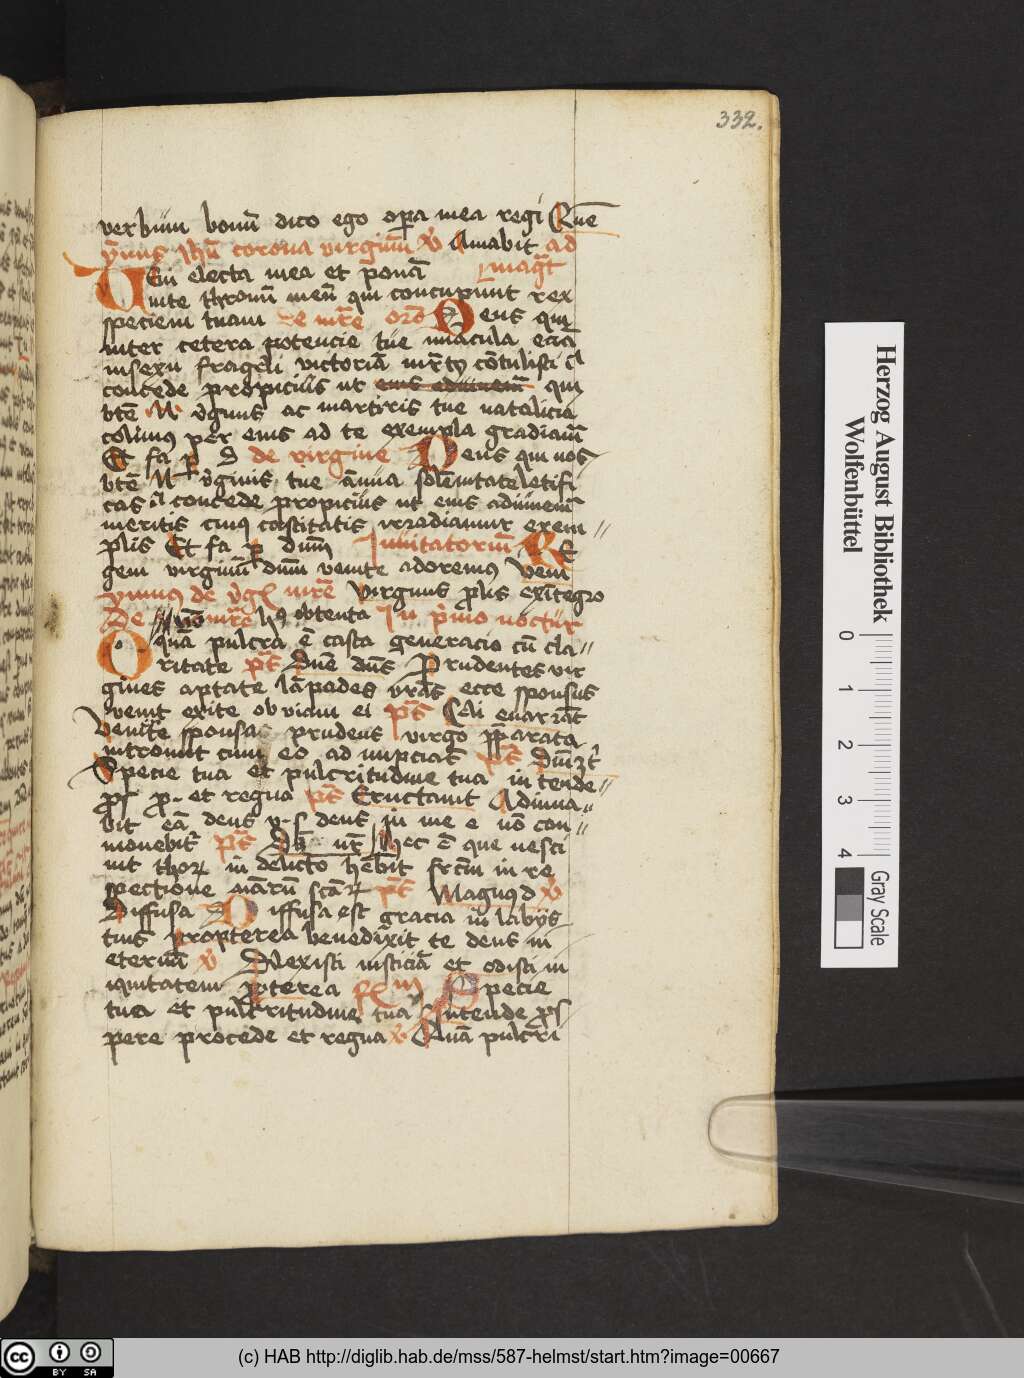 332.
verbum bonū dico ego opera mea regi Quē
ympnus Ihū corona virginū v̄ Amabit ad
Veni electa mea et ponā magt
in te thronū meū qui concupiuit rex
speciem tuam De mrē orō Deus qui
inter cetera potencie tue miracula eciā
in sexu fragili victoriā mrtii cōtulisti
concede propicius ut eius adiuuem qui
btē N virginis ac martiris tue natalicia
colimus per eius ad te exempla gradiamur
Et fa p d de virgine Deus qui nos
btē N virginis tue annua solēnitate letifi
cas concede propicius ut eius adiuuemur
meritis cuius castitatis irradiamur exem
plis Et fa p dnm Inuitatorium Re
gem virginū dnm venite adoremus Veni
ympnus de virg mrē Virginis plis
De nō mrē obtenta In primo noctur
O quā pulcra ē casta generacio cū cla
ritate ps Dnē dns Prudentes vir
gines aptate lāpades vras ecce sponsus
venit exite obviam ei ps Celi enarrāt
Veniste sponsa prudens virgo pparata
introiuit cum eo ad nupcias ps
Specie tua et pulcritudine tua intende
ps p. et regna ps Eructauit Adiuua
bit eā deus v. s deus in me e nō con
monebit ps Hec ē que nesci
uit thor in delicto hēbit frctm in re
spectione aīarū scar ps Magnus d v̄
Diffusa Diffusa est gracia in labijs
tuis propterea benedixit te deus in
eternū v̄ Dilexisti iusticiā et odisti in
iquitatem propterea Specie
tua et pulcritudine tua Intende ps
pere procede et regna v̄ Quā pulcri
Herzog August Bibliothek
Wolfenbüttel
0 1 2 3 4
Gray Scale
cc BY SA
(c) HAB http://diglib.hab.de/mss/587-helmst/start.htm?image=00667